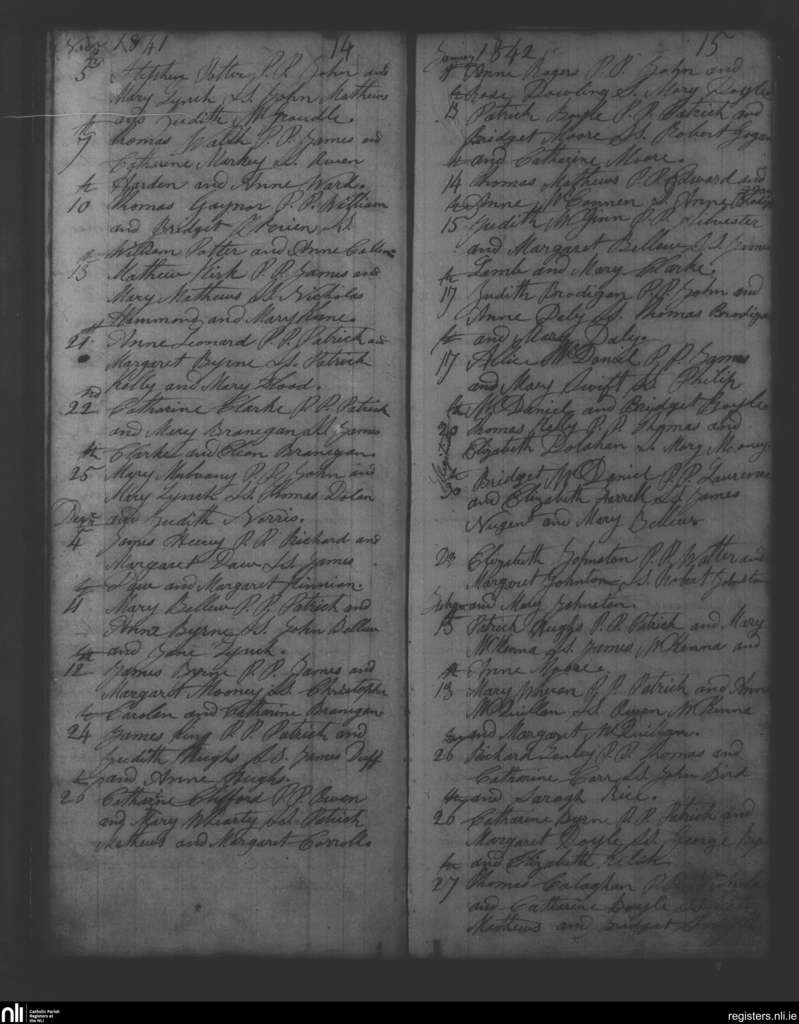 Novr 1841 14
5 Stephen Potter P.P. John and
Mary Lynch Ss. John Mathews
and Judith
7 Thomas Walsh P.P. James and
Catharine Markey Ss. Owen
Harden and Anne Ward.
10 Thomas Gaynor P.P. William
and Bridget Ss.
William Potter and Anne
15 Mathew Kirk P.P. James and
Mary Mathews Ss. Nicholas
Hammond and Mary Kane.
21 Anne Leonard P.P. Patrick and
Margaret Byrne Ss. Patrick
Kelly and Mary Flood.
22 Catharine Clarke P.P. Patrick
and Mary Branegan Ss. James
Clarke and Branegan.
25 Mary P.P. John and
Mary Lynch Ss. Thomas Dolan
Decr and Judith Norris.
4 James P.P. Richard and
Margaret Daw Ss. James
Daw and Margaret Kinnian.
11 Mary Bellew P.P. Patrick and
Anne Byrne Ss. John Bellew
and Jane Lynch.
12 James Byrne P.P. James and
Margaret Mooney Ss. Christopher
Carolan and Catharine Branegan
24 James King P.P. Patrick and
Judith Hughs Ss. James Duff
and Anne Hughs.
26 Catharine Clifford P.P. Owen
and Mary Ss. Patrick
Mathews and Margaret Carroll
January 1842 15
Anne Rogers P.P. John and
Rose Dowling S. Mary Doyle
13 Patrick Boyle P.P. Patrick and
Bridget Moore Ss. Robert Gogan
and Catharine Moore.
14 Thomas Mathews P.P. Edward and
Anne McConnen S. Anne
15 Judith McGinn P.P. Silvester
and Margaret Bellew Ss. James
Lamb and Mary Clarke.
17 Judith Brodigan P.P. John and
Anne Daly Ss. Thomas Brodigan
and Mary Daly.
17 Alice McDaniel P.P. James
and Mary Swift Ss. Philip
McDaniel and Bridget Boyle
20 Thomas Kelly P.P. Thomas and
Elizabeth Dolahan S. Mary Mooney
30 Bridget McDaniel P.P. Laurence
and Elizabeth Farrell Ss. James
Nugent and Mary Bellew
23 Elizabeth Johnston P.P. Walter and
Margaret Johnston Ss. Robert Johnston
and Mary Johnston.
13 Patrick Hughs P.P. Patrick and Mary
McKenna Ss. James McKenna and
Anne Moore.
13 Mary P.P. Patrick and Anne
McQuillan Ss. Owen McKenna
and Margaret
20 Richard P.P. Thomas and
Catharine Carr Ss. John Bird
and Saragh Rice.
26 Catharine Byrne P.P. Patrick and
Margaret Doyle Ss. George
and Elizabeth
27 Thomas Calaghan P.P.
and Catherine Boyle Ss.
Mathews and Bridget
nli Catholic Parish
Registers at
the NLI
registers.nli.ie